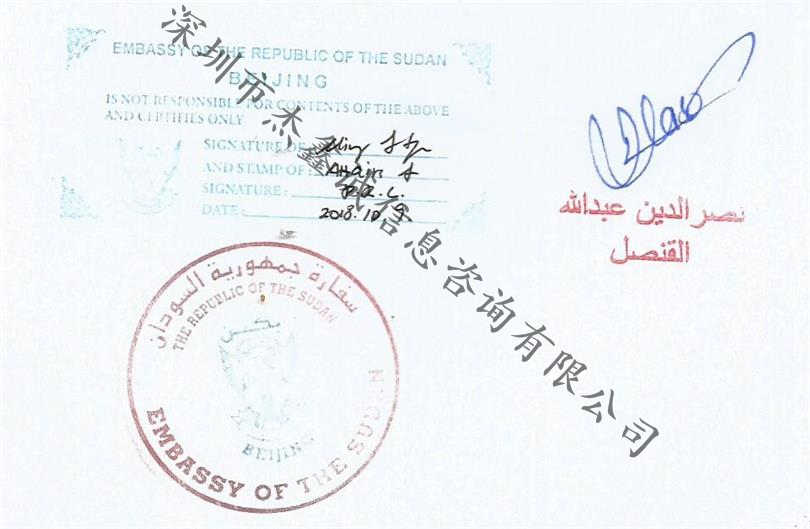 EMBASSY OF THE REPUBLIC OF THE SUDAN
BEIJING
IS NOT RESPONSIBLE FOR CONTENTS OF THE ABOVE
AND CERTIFIES ONLY
SIGNATURE OF
AND STAMP OF :
SIGNATURE :
DATE : 2018.10 9
نصر الدين عبدالله
القنصل
سفارة جمهورية السودان
THE REPUBLIC OF THE SUDAN
BEIJING
EMBASSY OF THE SUDAN
深圳市杰鑫诚信息咨询有限公司